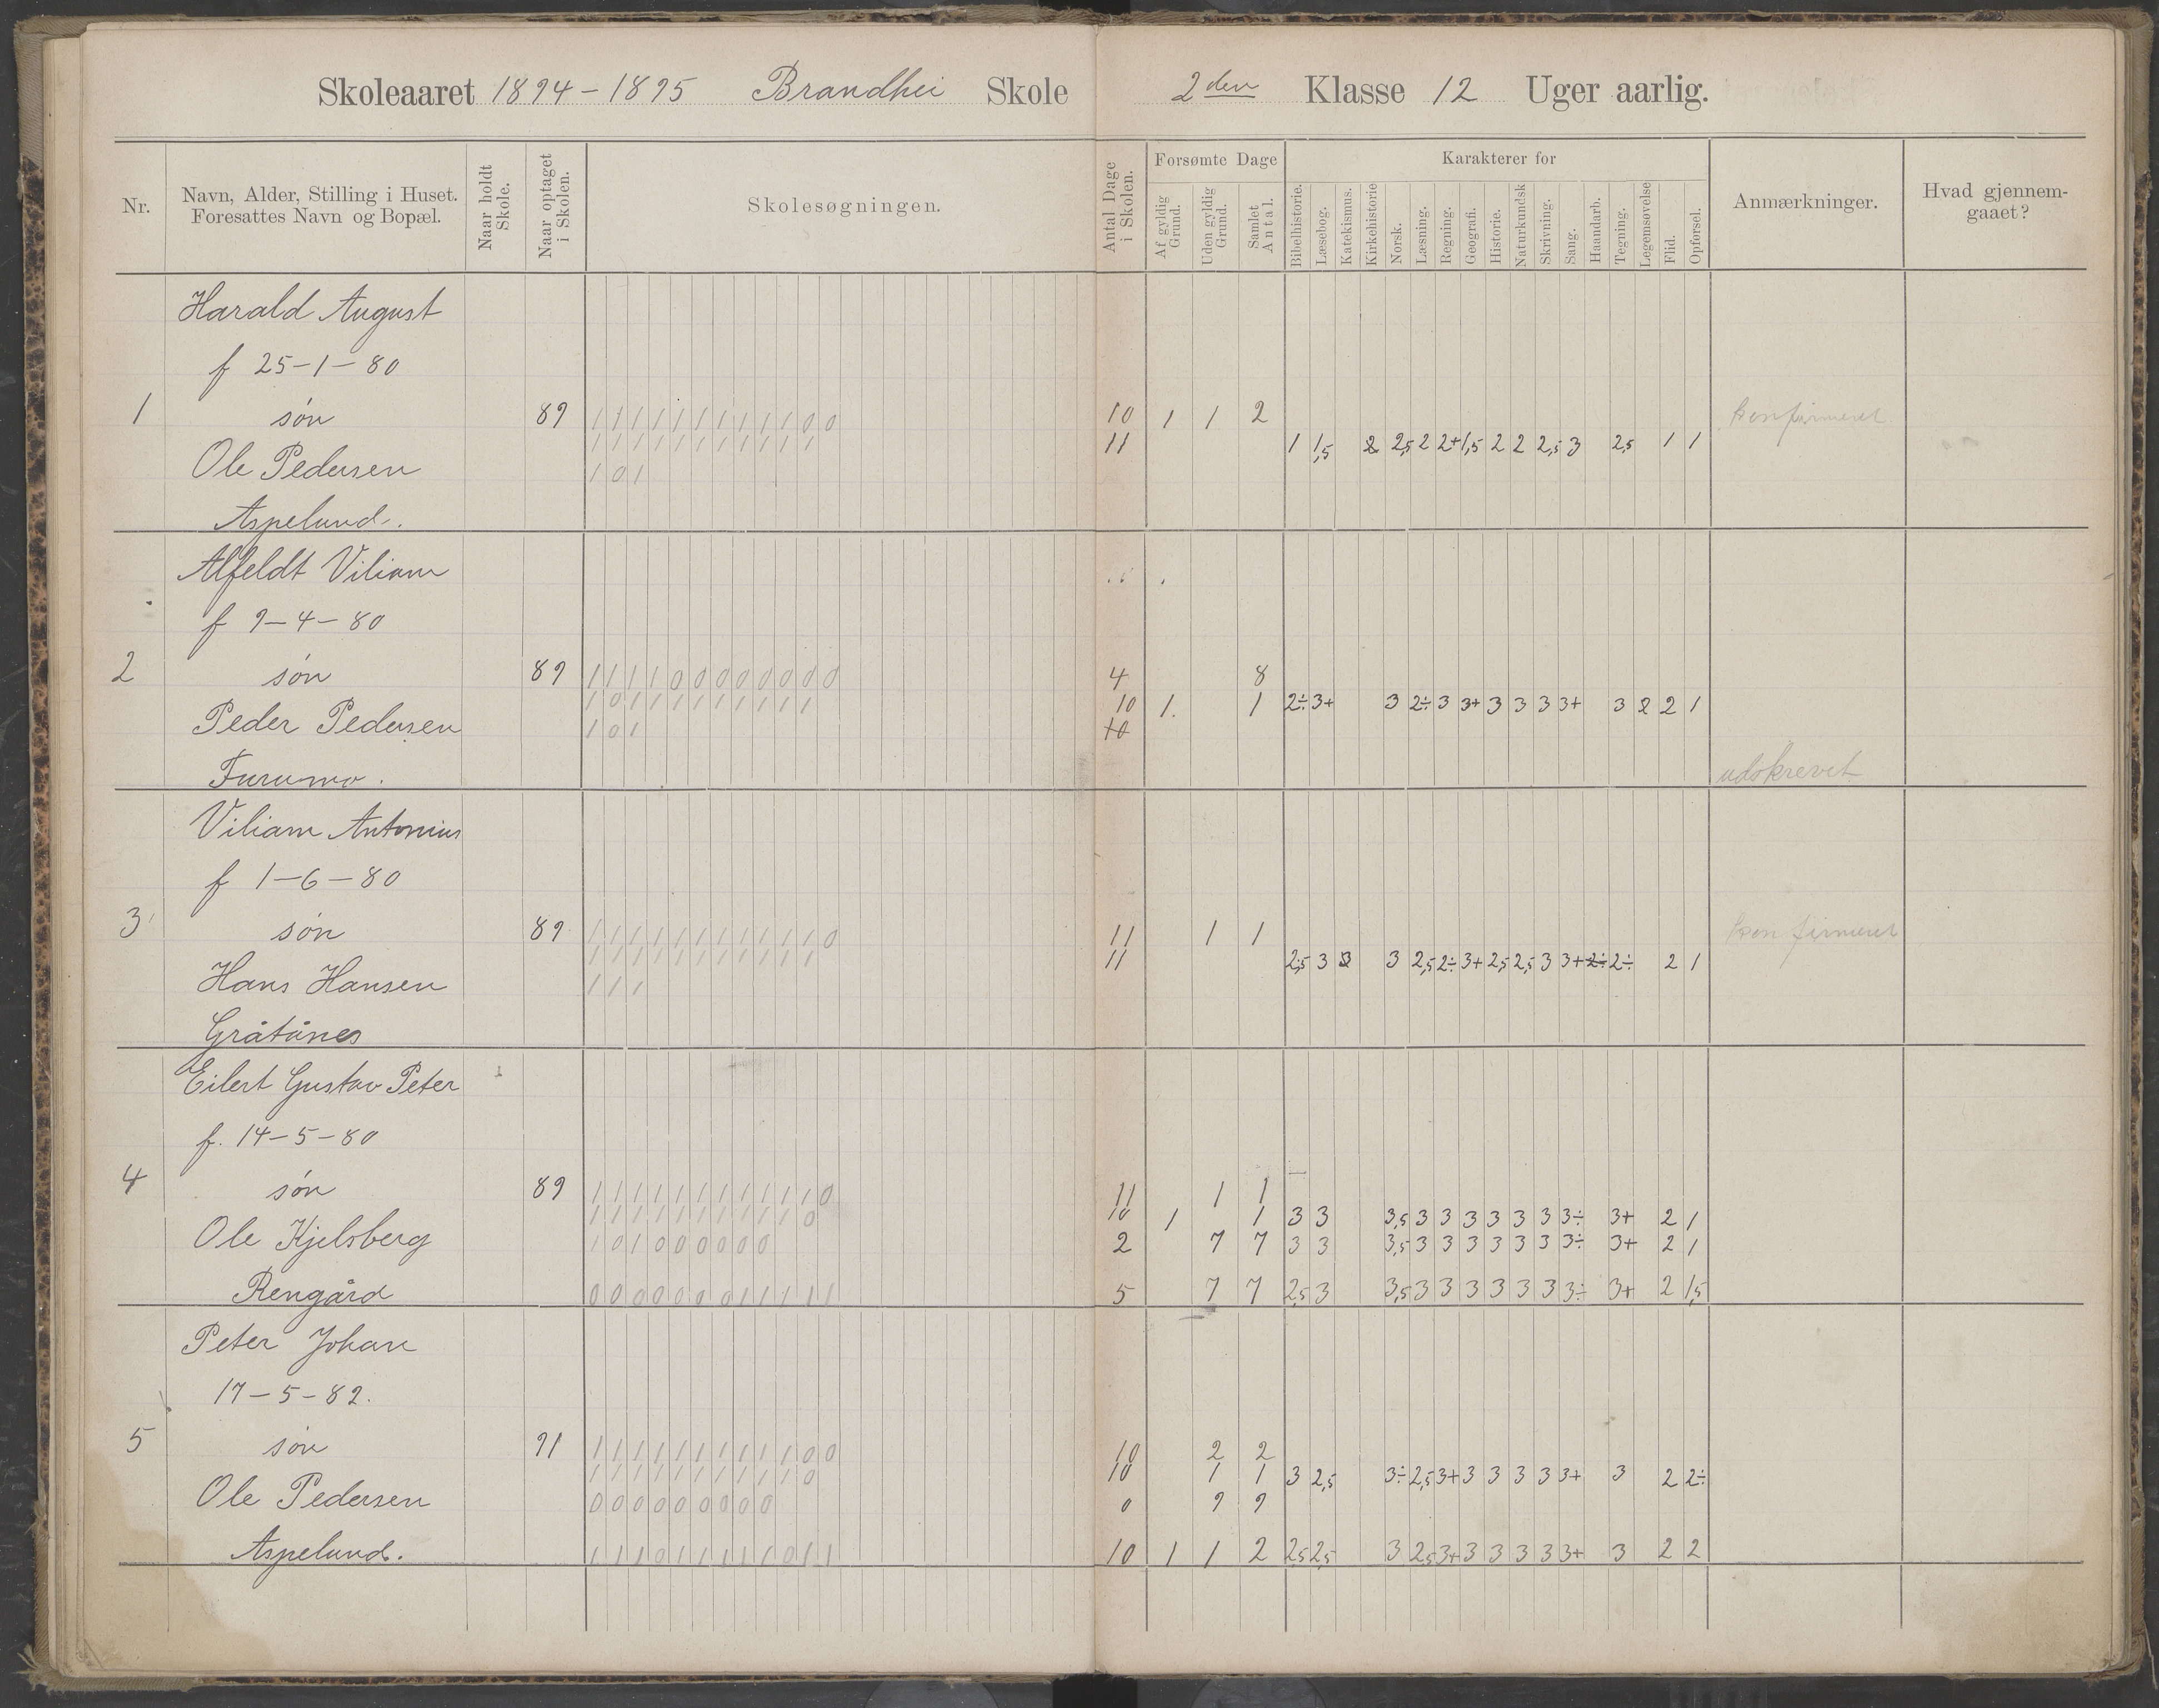 Skoleaaret 1894-1895 Brandhei Skole 2den Klasse 12 Uger aarlig.
Nr.
Navn, Alder, Stilling i Huset.
Foresattes Navn og Bopæl.
Naar holdt
Skole.
Naar optaget
i Skolen.
Skolesøgningen.
Antal Dage
i Skolen.
Forsømte Dage
Af gyldig
Grund.
Uden gyldig
Grund.
Samlet
Antal.
Karakterer for
Bibelhistorie.
Læsebog.
Katekismus.
Kirkehistorie
Norsk.
Læsning.
Regning.
Geografi.
Historie.
Naturkundsk
Skrivning.
Sang.
Haandarb.
Tegning.
Legemsøvelse
Flid.
Opførsel.
Anmærkninger.
Hvad gjennem-
gaaet?
Harald August
f 25-1-80
1 søn 89 1 1 1 1 1 1 1 1 1 1 0 0 10 1 1 2 konfirmeret
1 1 1 1 1 1 1 1 1 1 1 11 1 1,5 2 2,5 2 2+ 1,5 2 2 2,5 3 2,5 1 1
Ole Pedersen 1 0 1
Aspelund.
Alfeldt Viliam
f 9-4-80
2 søn 89 1 1 1 1 0 0 0 0 0 0 0 0 4 8
1 0 1 1 1 1 1 1 1 1 1 10 1. 1 2÷ 3+ 3 2÷ 3 3+ 3 3 3 3+ 3 2 2 1
Peder Pedersen 1 0 1 10
Furumo. udskrevet
Viliam Antonius
f 1-6-80
3 søn 89 1 1 1 1 1 1 1 1 1 1 1 0 11 1 1 konfirmeret
1 1 1 1 1 1 1 1 1 1 1 11 2,5 3 3 3 2,5 2÷ 3+ 2,5 2,5 3 3+ 2÷ 2÷ 2 1
Hans Hansen 1 1 1
Gråtånes
Eilert Gustav Peter
f. 14-5-80
4 søn 89 1 1 1 1 1 1 1 1 1 1 1 0 11 1 1
1 1 1 1 1 1 1 1 1 1 0 10 1 1 3 3 3,5 3 3 3 3 3 3 3÷ 3+ 2 1
Ole Kjelsberg 1 0 1 0 0 0 0 0 0 2 7 7 3 3 3,5 3 3 3 3 3 3 3÷ 3+ 2 1
Rengård 0 0 0 0 0 0 0 1 1 1 1 1 5 7 7 2,5 3 3,5 3 3 3 3 3 3 3÷ 3+ 2 1,5
Peter Johan
17-5-82.
5 søn 91 1 1 1 1 1 1 1 1 1 1 0 0 10 2 2
1 1 1 1 1 1 1 1 1 1 0 10 1 1 3 2,5 3÷ 2,5 3+ 3 3 3 3 3+ 3 2 2÷
Ole Pedersen 0 0 0 0 0 0 0 0 0 0 9 9
Aspelund. 1 1 1 0 1 1 1 1 1 0 1 1 10 1 1 2 2,5 2,5 3 2,5 3+ 3 3 3 3 3+ 3 2 2